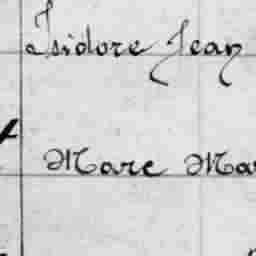 Isidore Jean
Marc Mar